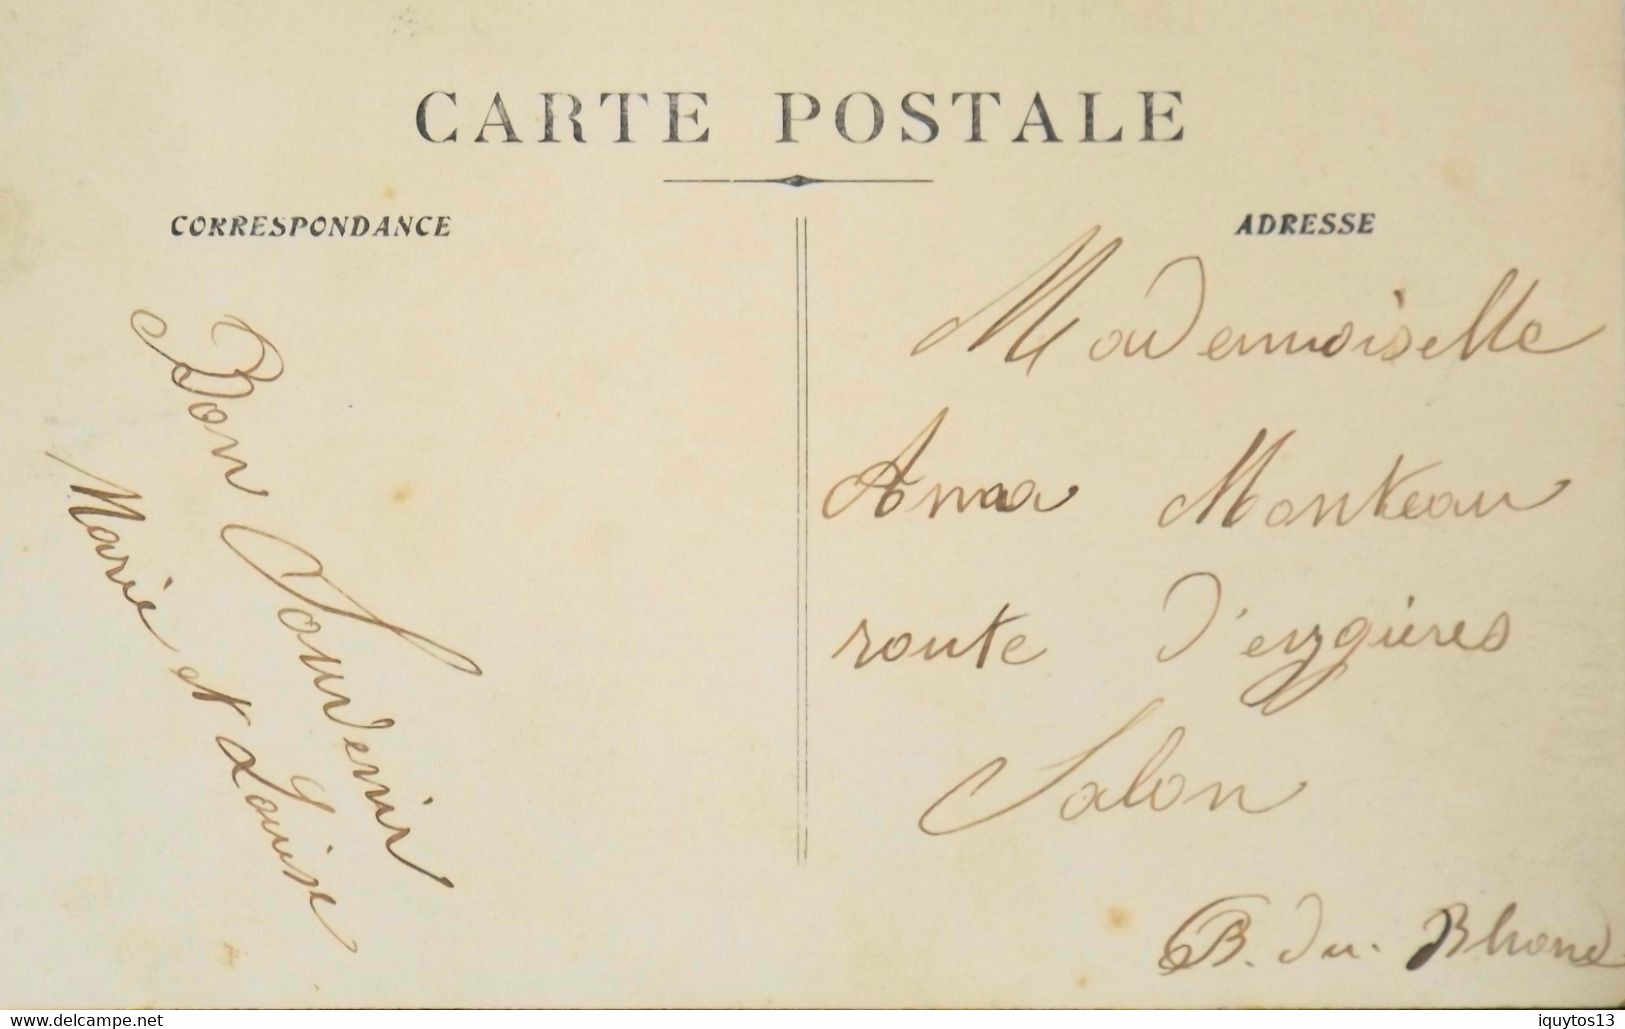 CARTE POSTALE
CORRESPONDANCE
ADRESSE
Bon Souvenir
Marie et Louise
Mademoiselle
Anna Monteau
route d'eyguieres
Salon
B. du. Rhone
www.delcampe.net
iquytos13